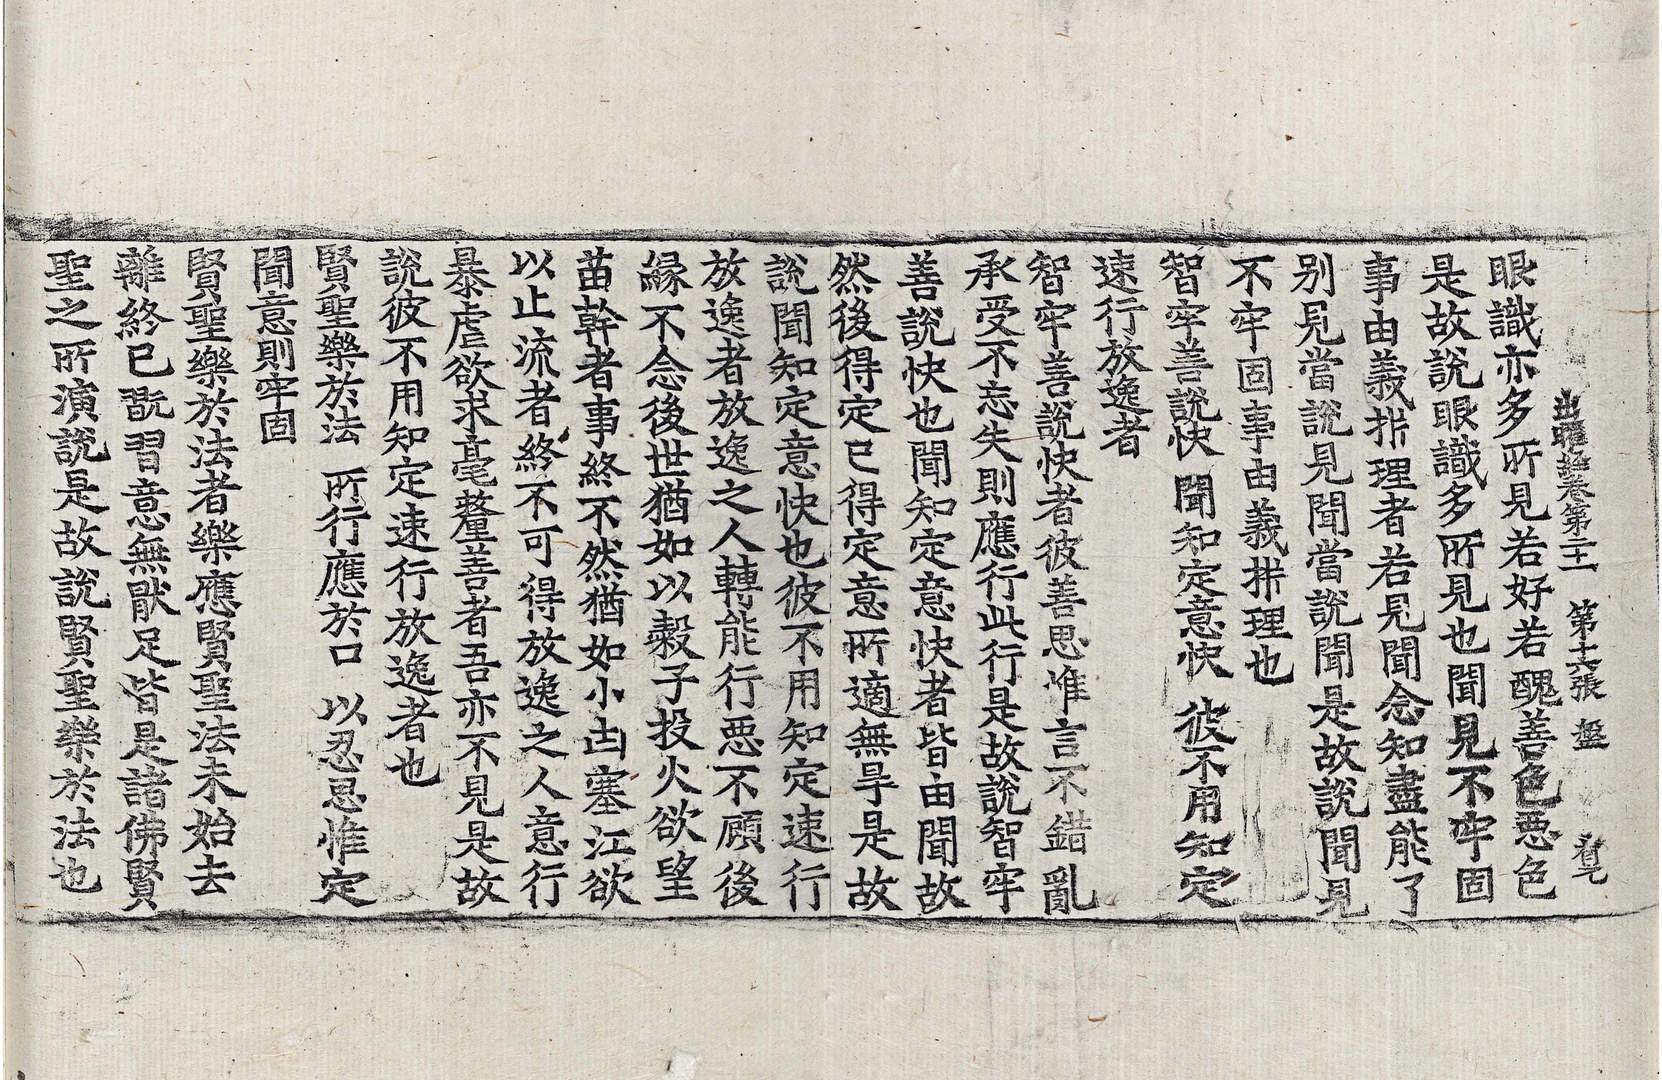 出曜經卷第二十一 第十六張 盤
眼識亦多所見若好若醜善色惡色
是故說眼識多所見也聞見不牢固
事由義柝理者若見聞念知盡能了
別見當說見聞當說聞是故說聞見
不牢固事由義柝理也
智牢善說快 聞知定意快 彼不用知定
速行放逸者
智牢善說快者彼善思惟言不錯亂
承受不忘失則應行此行是故說智牢
善說快也聞知定意快者皆由聞故
然後得定已得定意所適無㝵是故
說聞知定意快也彼不用知定速行
放逸者放逸之人轉能行惡不顧後
緣不念後世猶如以穀子投火欲望
苗幹者事終不然猶如小凷塞江欲
以止流者終不可得放逸之人意行
暴虐欲求毫釐善者吾亦不見是故
說彼不用知定速行放逸者也
賢聖樂於法 所行應於口 以忍思惟定
聞意則牢固
賢聖樂於法者樂應賢聖法未始去
離終已翫習意無猒足皆是諸佛賢
聖之所演說是故說賢聖樂於法也